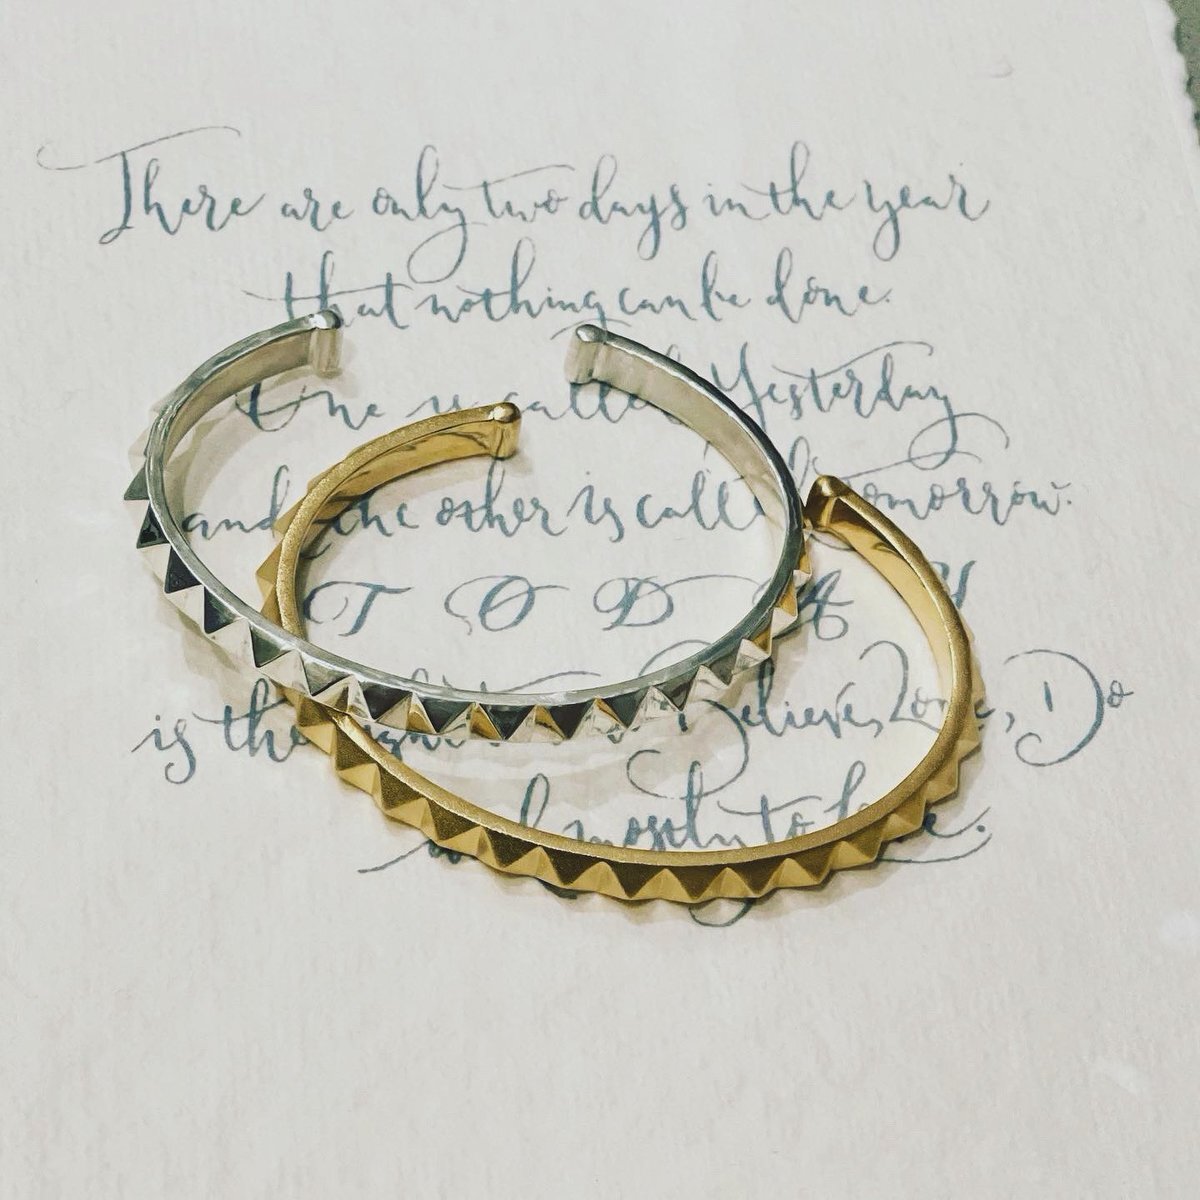 There are only two days in the year
that nothing can be done.
One is called Yesterday
and the other is called Tomorrow.
TODAY
is the right Believe, Love, Do
mostly to